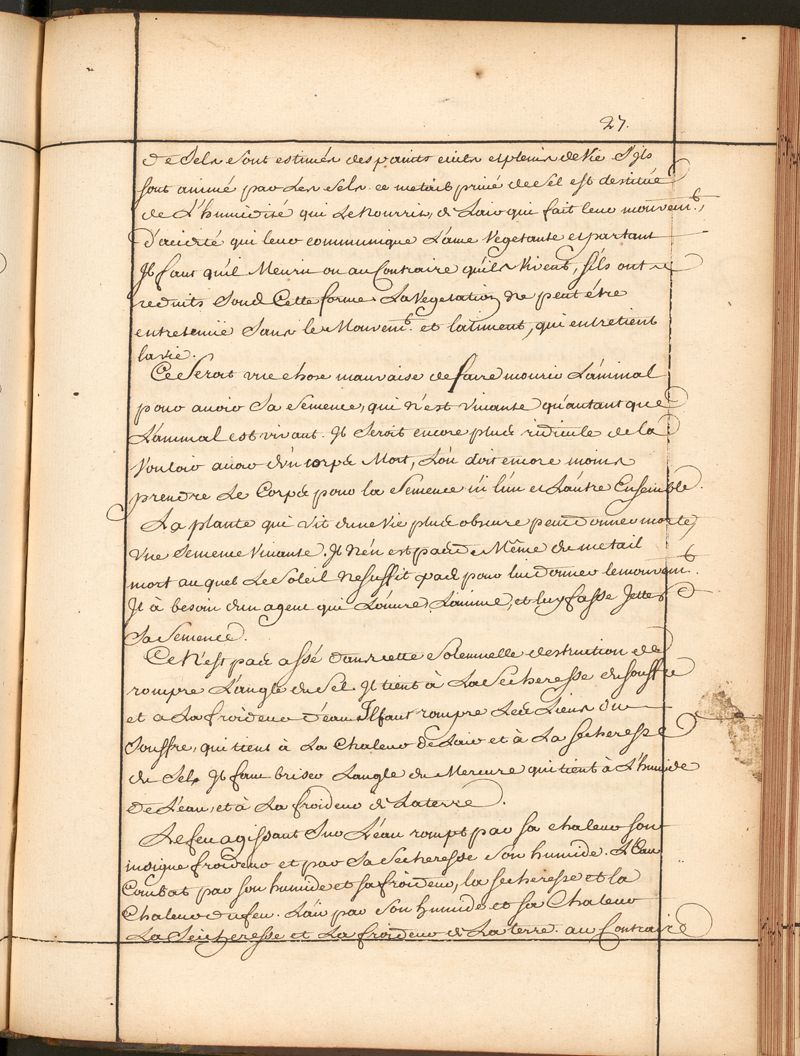 27.
de Sels sont estimés des points civils et pleins de Vie S'ils
sont animé par Les Sels. ce metail privé de Sel est destitué
de L'humidité qui Le Nourris, de Lair qui fait leur mouvem.t,
D'acidité qui leur communique L'ame Vegetante et partant
Il faut qu'il Meurin ou au Contraire qu'ils Vivent, s'ils ont
reduits Soud Cette forme. La Vegetation ne peut être
entretenüe Sans le Mouvem.t et laliment, qui entretient
la vie.
Ce Seroit une chose mauvaise de faire mourir L'animal
pour avoir Sa Semence, qui n'est Vivante qu'autant que
L'animal est vivant. Il Seroit encore plus ridicule de la
Vouloir avoir d'un corps Mort, L'on doit encore moins
prendre Le Corps pour la Semence ni l'un et L'autre Ensemble.
La plante qui vit d'une Vie plus obscure peut donner morte,
Une Semence Vivante. Il n'en est pas de Même du metail
mort auquel Le Soleil ne Suffit pas pour lui donner le mouvem.t.
Il à besoin d'un agent qui L'ouvre L'anime, et luy fasse Jetter
Sa Semence.
Ce N'est pas assé dans cette Solennelle destruction de
rompre L'angle du Sel. Il tient à La Secheresse du souffre
et a La froideur d'eau Il faut rompre Les Liens du
Souffre, qui tient à La Chaleur de Lair et à La secheresse
du Sel. Il faut briser Langle du Mercure qui tient à L'humide
De L'eau, et à La froideur de La terre.
Le feu agissant Sur L'eau rompt par sa chaleur son
insigne froideur et par Sa Secheresse Son humide. L'Eau
Combat par son humide et sa froideur, la secheresse et la
Chaleur du feu. L'air par Son humide et sa Chaleur
La Seicheresse et La froideur de La terre. au Contraire